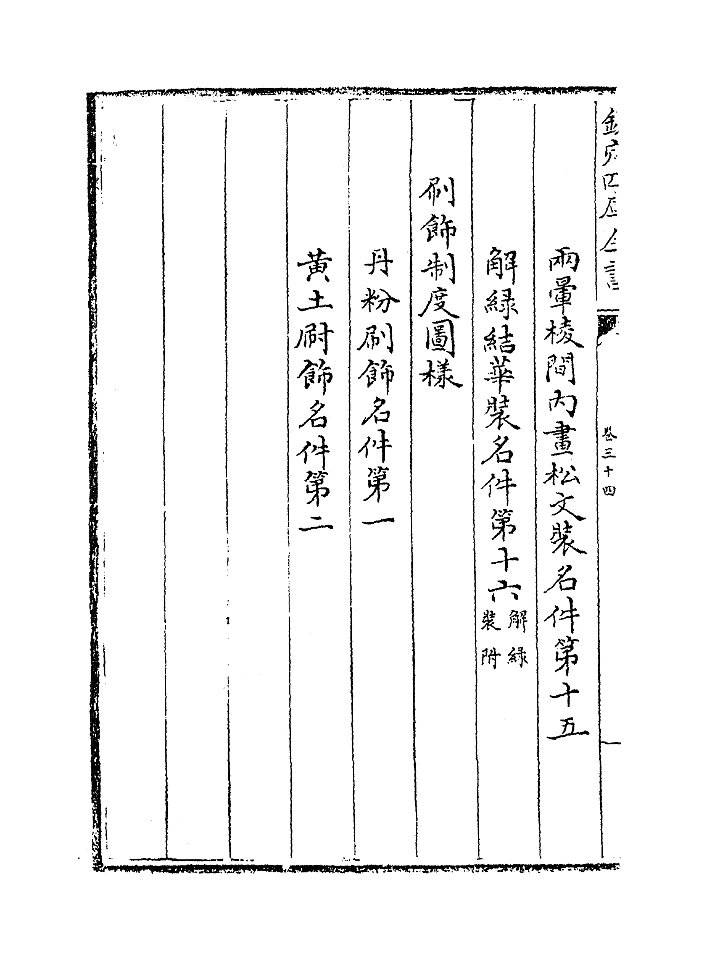 欽定四庫全書
卷三十四
兩暈棱間內畫松文裝名件第十五
解緑結華裝名件第十六解緑裝附
刷飾制度圖樣
丹粉刷飾名件第一
黃土刷飾名件第二